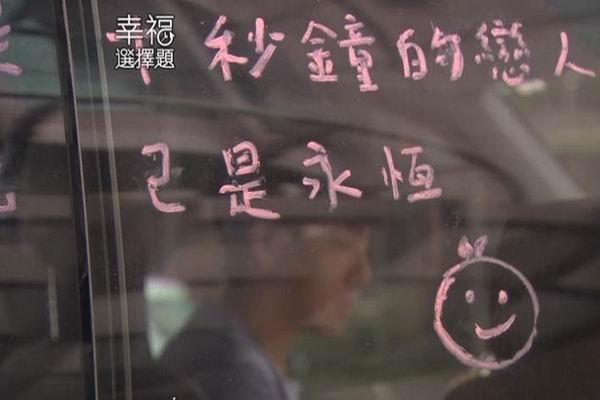 幸福
選擇題
秒鐘的戀人
已是永恆